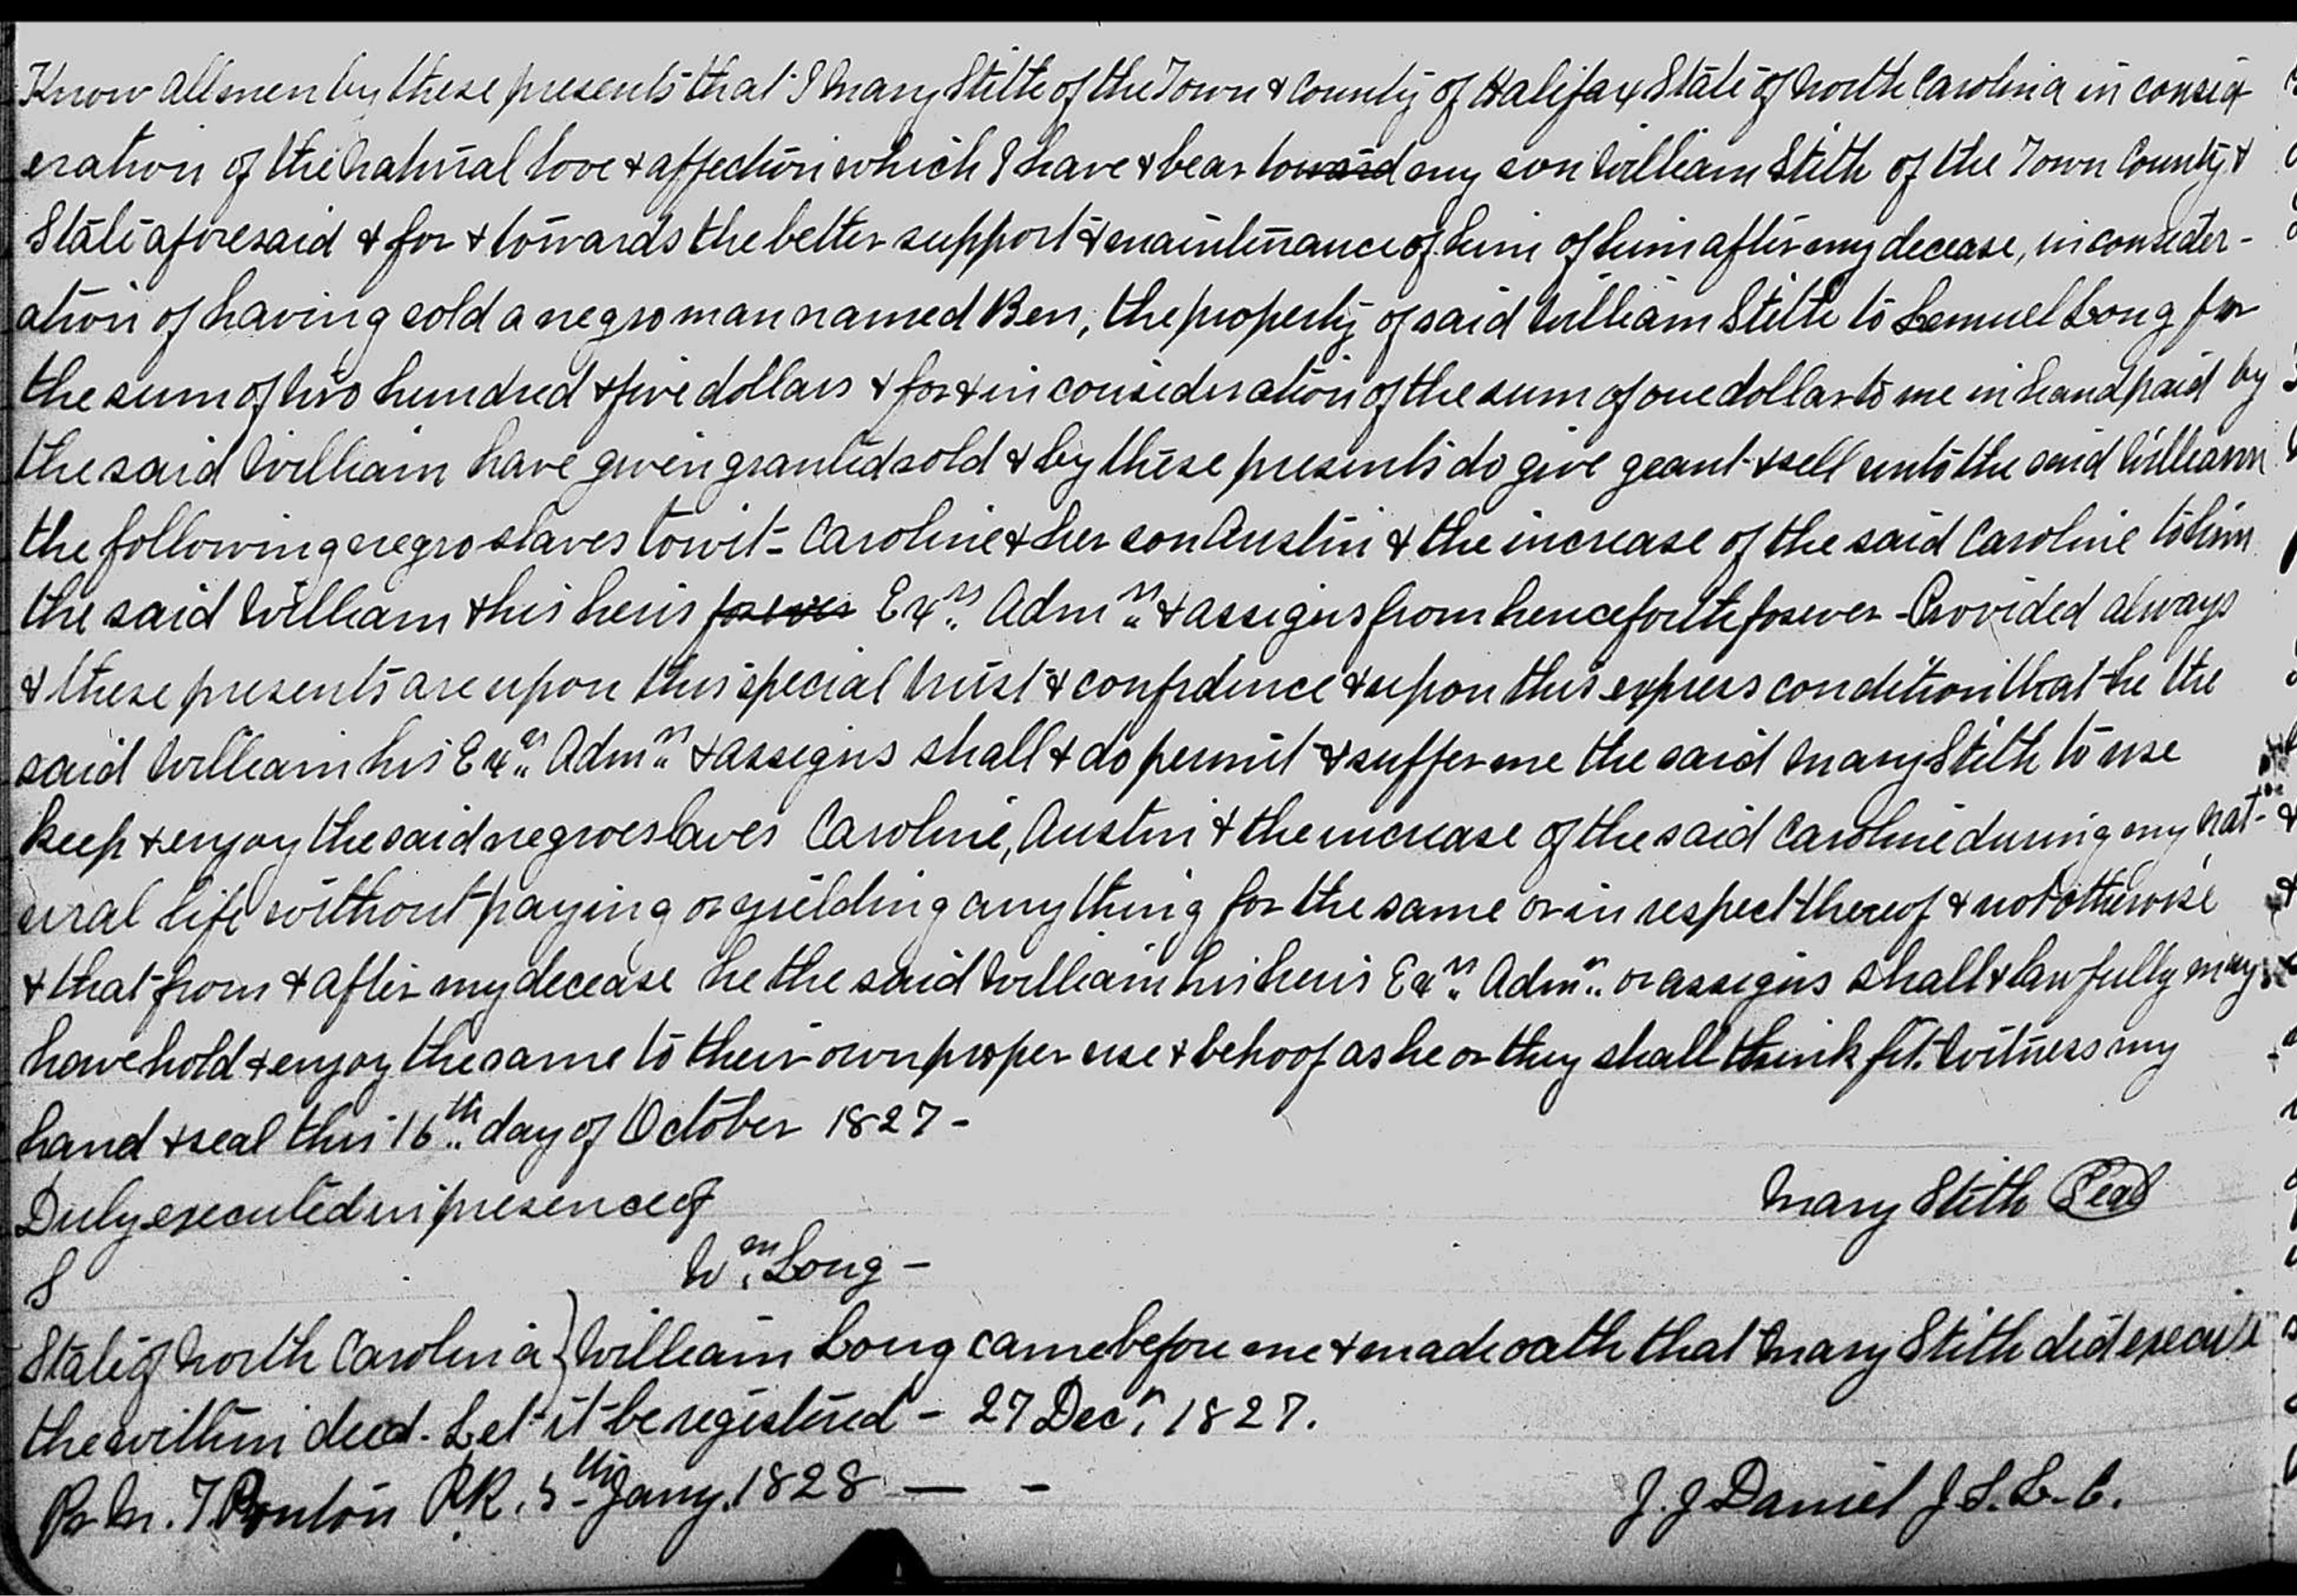 Know all men by these presents that I Mary Stith of the Town & County of Halifax State of North Carolina in consid
eration of the Natural love & affection which I have & bear toward my son William Stith of the Town County &
State aforesaid & for & towards the better support & maintenance of him of him after my decease, in consider-
ation of having sold a negro man named Ben, the property of said William Stith to Lemuel Long for
the sum of two hundred & five dollars & for & in consideration of the sum of one dollar to me in hand paid by
the said William have given granted sold & by these presents do give geant & sell unto the said William
the following negro slaves towit - Caroline & her son Austin & the increase of the said Caroline to him
the said William & his heirs forever Exrs Admrs & assigns from henceforth forever - Provided always
& these presents are upon this special trust & confidence & upon this express condition that he the
said William his Exrs Admrs & assigns shall & do permit & suffer me the said Mary Stith to use
keep & enjoy the said negroe slaves Caroline, Austin & the increase of the said Caroline during my nat-
ural life without paying or yielding any thing for the same or in respect thereof & not otherwise
& that from & after my decease he the said William his heirs Exrs Admrs or assigns shall & lawfully may
have hold & enjoy the same to their own proper use & behoof as he or they shall think fit. Witness my
hand & seal this 16th day of October 1827 -
Duly executed in presence of
Mary Stith Seal
S
Wm Long -
State of North Carolina } William Long came before me & made oath that Mary Stith did execute
the within deed. Let it be registered - 27 Decr 1827.
Pr M. T. Ponton P.R. 5th Jany. 1828 — -
J. J Daniel J. S. L. C.